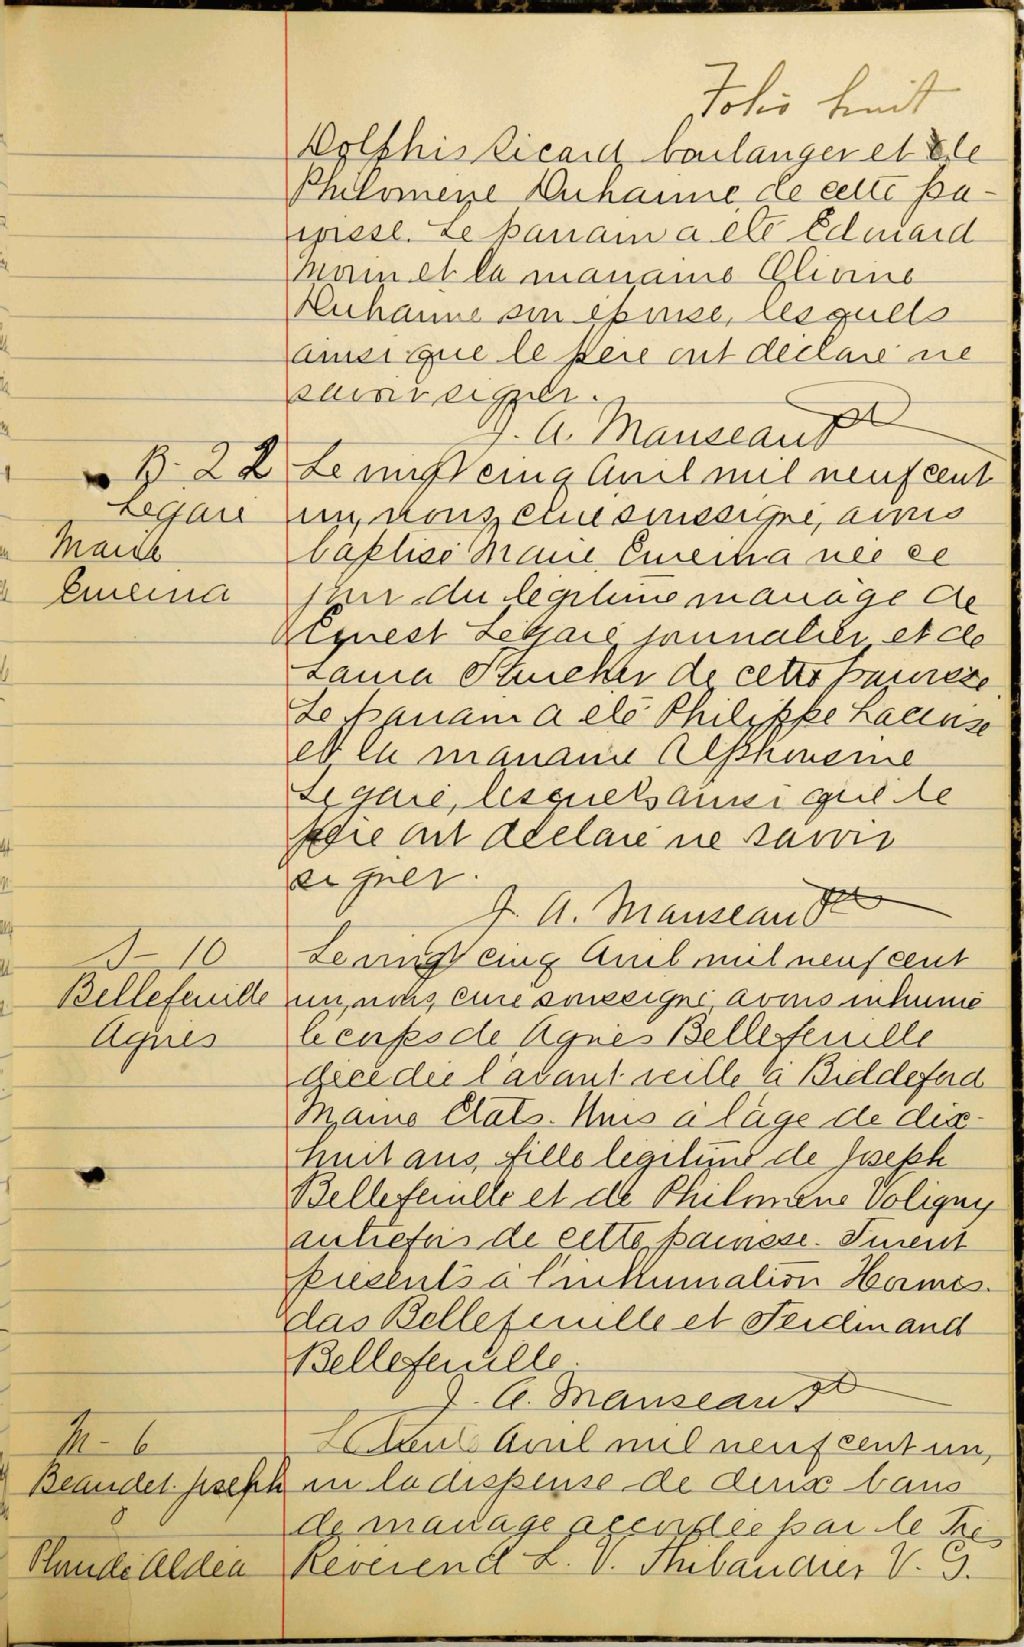 Folio huit
Dolphis Ricard boulanger et de
Philomène Duhaime de cette pa-
roisse. Le parrain a été Edouard
Morin et la marraine Olivine
Duhaime son épouse, lesquels
ainsi que le père ont déclaré ne
savoir signer.
J. A. Manseau Ptre
B- 22
Légaré
Marie
Emerina
Le vingt cinq Avril mil neuf cent
un, nous, curé soussigné, avons
baptisé Marie Emerina née ce
jour du légitime mariage de
Ernest Légaré journalier et de
Laura de cette paroisse.
Le parrain a été Philippe Lacerise
et la marraine Alphonsine
Légaré, lesquels ainsi que le
père ont déclaré ne savoir
signer.
J. A. Manseau Ptre
S- 10
Bellefeuille
Agnès
Le vingt cinq Avril mil neuf cent
un, nous, curé soussigné, avons inhumé
le corps de Agnès Bellefeuille
décédée l'avant veille à Biddeford
Maine Etats-Unis à l'âge de dix-
huit ans, fille légitime de Joseph
Bellefeuille et de Philomène Voligny
autrefois de cette paroisse. Furent
présents à l'inhumation Hormis-
das Bellefeuille et Ferdinand
Bellefeuille.
J. A. Manseau Ptre
M- 6
Beaudet Joseph
&
Plourde Aldéa
Le Avril mil neuf cent un,
vu la dispense de deux bans
de mariage accordée par le Très
Révérend L. V. Thibaudier V. G.